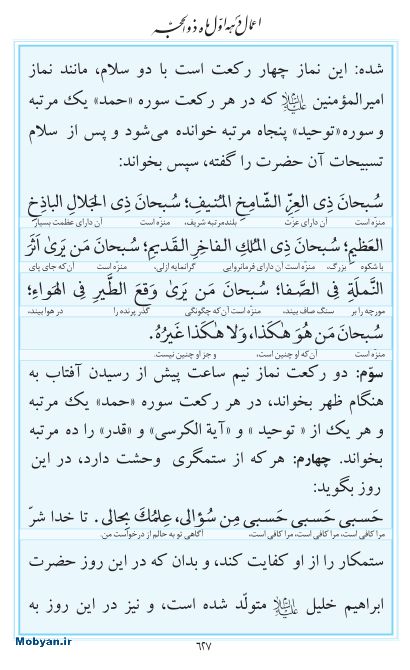 اعمال دهه اوّل ماه ذوالحجّه
شده: این نماز چهار رکعت است با دو سلام، مانند نماز
امیرالمؤمنین علیه‌السلام که در هر رکعت سوره «حمد» یک مرتبه
و سوره«توحید» پنجاه مرتبه خوانده می‌شود و پس از سلام
تسبیحات آن حضرت را گفته، سپس بخواند:
سُبحانَ ذِی العِزِّ الشّامِخِ المُنیفِ؛ سُبحانَ ذِی الجَلالِ الباذِخِ
منزّه است آن دارای عزت بلندمرتبه شریف، منزّه است آن دارای عظمت بسیار
العَظیمِ؛ سُبحانَ ذِی المُلکِ الفاخِرِ القَدیمِ؛ سُبحانَ مَن یَریٰ اَثَرَ
با شکوه بزرگ، منزّه است آن دارای فرمانروایی گرانمایه ازلی، منزّه است آن‌که جای پای
النَّملَةِ فِی الصَّفا؛ سُبحانَ مَن یَریٰ وَقعَ الطَّیرِ فِی الهَواءِ؛
مورچه را بر سنگ صاف بیند، منزّه است آن که چگونگی گذر پرنده را در هوا بیند،
سُبحانَ مَن هُوَ هٰکَذا، وَلا هٰکَذا غَیرُهُ.
منزّه است آن‌که او چنین است، و جز او چنین نیست.
سوّم: دو رکعت نماز نیم ساعت پیش از رسیدن آفتاب به
هنگام ظهر بخواند، در هر رکعت سوره «حمد» یک مرتبه
و هر یک از « توحید » و «آیة الکرسی» و «قدر» را ده مرتبه
بخواند. چهارم: هر که از ستمگری وحشت دارد، در این
روز بگوید:
حَسبی حَسبی حَسبی مِن سُؤالی، عِلمُکَ بِحالی. تا خدا شرّ
مرا کافی است، مرا کافی است، مرا کافی است، آگاهی تو به حالم از درخواست من.
ستمکار را از او کفایت کند، و بدان که در این روز حضرت
ابراهیم خلیل علیه‌السلام متولّد شده است، و نیز در این روز به
Mobyan.ir
۶۲۷